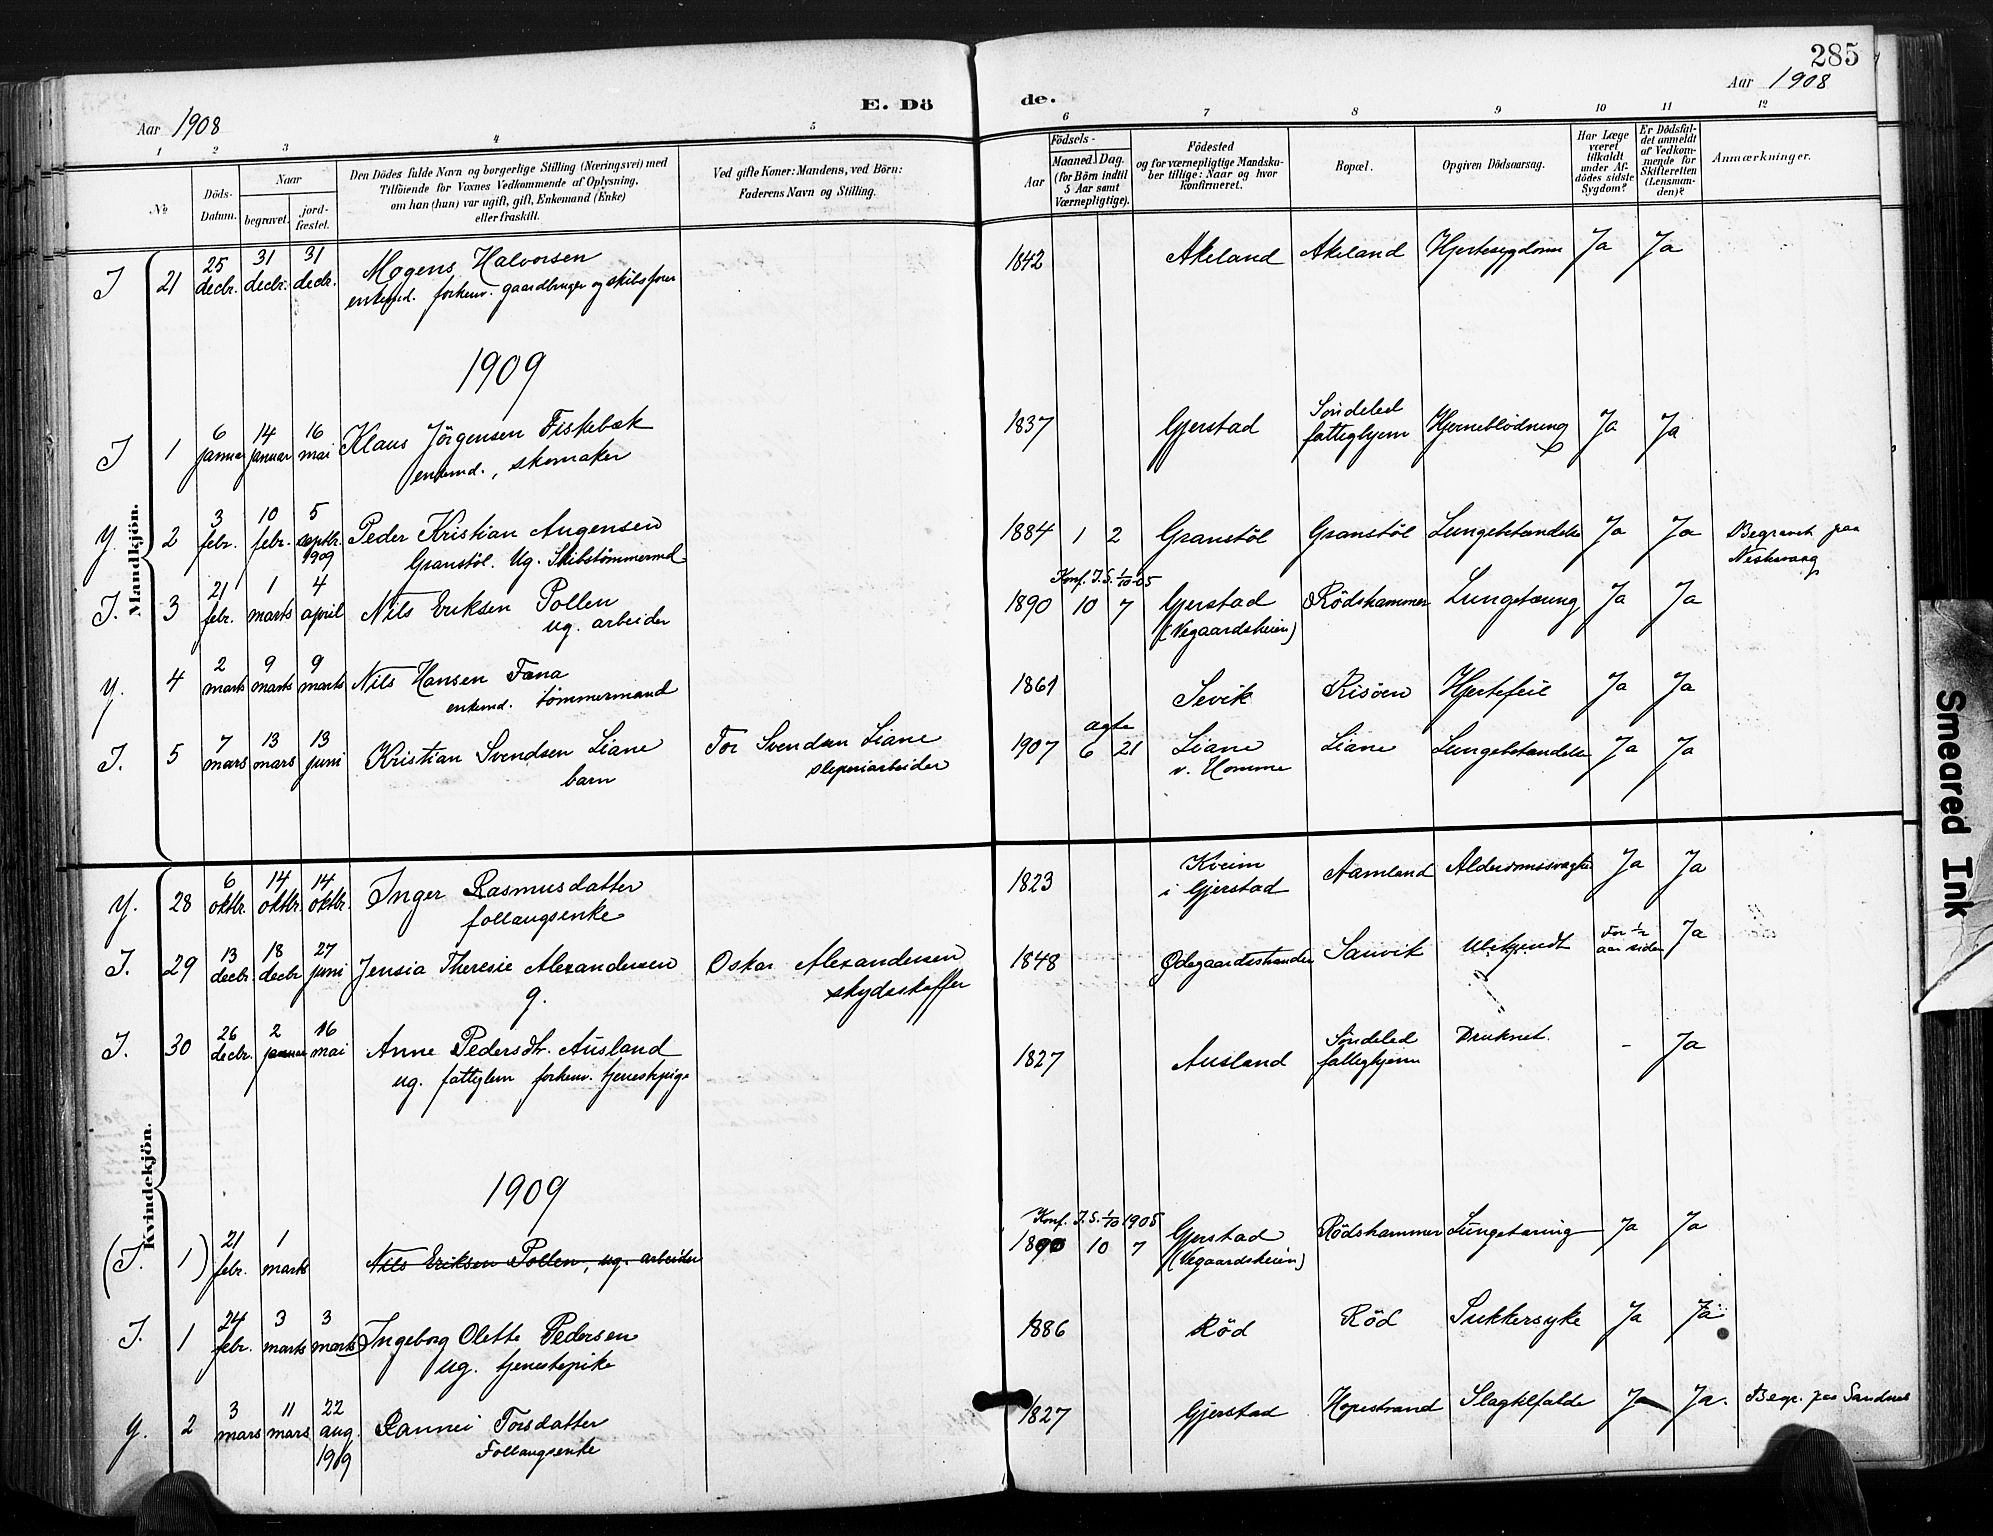 285
Aar 1908
E. Dö
de.
Aar 1908
1 2 3 4 5 6 7 8 9 10 11 12
№
Döds-Datum.
Naar
begravet.
jordfæstet.
Den Dödes fulde Navn og borgerlige Stilling (Næringsvei) med
Tilföiende for Voxnes Vedkommende af Oplysning,
om han (hun) var ugift, gift, Enkemand (Enke)
eller fraskilt.
Ved gifte Koner: Mandens, ved Börn:
Faderens Navn og Stilling.
Födsels-
Aar
Maaned. Dag.
(for Börn indtil
5 Aar samt
Værnepligtige).
Födested
og for værnepligtige Mandska-
ber tillige: Naar og hvor
konfirmeret.
Bopæl.
Opgiven Dödsaarsag.
Har Læge
været
tilkaldt
under Af-
dödes sidste
Sygdom?
Er Dödsfal-
det anmeldt
af Vedkom-
mende for
Skifteretten
(Lensman-
den)?
Anmærkninger.
Mandkjön.
I 21 25 decbr. 31 decbr. 31 decbr. Mogens Halvorsen 1842 Akeland Akeland Hjertesygdom Ja Ja
enkemd. forhenv. gaardbruger og skibsfører
1909
I 1 6 januar 14 januar 16 mai Klaus Jörgensen Fiskebæk 1837 Gjerstad Söndeled fattighjem Hjerneblödning Ja Ja
enkemd., skomaker
Y. 2 3 febr. 10 febr. 5 septbr. 1909 Peder Kristian Augensen 1884 1 2 Granstöl Granstöl Lungebetændelse Ja Ja Begravet paa
Granstöl. Ug. Skibstömmermd. Neskevaag
Konf. I.S. 1/10 05
I. 3 21 febr. 1 marts 4 april Nils Eriksen Pollen 1890 10 7 Gjerstad Rödshammer Lungetæring Ja Ja
ug. arbeider (Vegaardsheien)
Y. 4 2 marts 9 marts 9 marts Nils Hansen Fana 1861 Sevik Risöen Hjertefeil Ja Ja
enkemd. tömmermand
I. 5 7 mars 13 mars 13 juni Kristian Svendsen Liane Tor Svendsen Liane 1907 6 21 Liane Liane Lungebetændelse Ja Ja
barn sliperiarbeider v. Homme
Kvindekjön.
Y. 28 6 oktbr. 14 oktbr. 14 oktbr. Inger Rasmusdatter 1823 Kveim i Gjerstad Aamland Alderdomssvaghed Ja Ja
follaugsenke
I. 29 13 decbr. 18 decbr 27 juni Jensia Theresie Alexandersen Oskar Alexandersen 1848 Ödegaardsstranden Sanvik Ubekjendt For 1/2 aar siden Ja
g. skydsskaffer
I. 30 26 decbr. 2 januar 16 mai Anne Pedersdt. Ausland 1827 Ausland Söndeled fattighjem Druknet. - Ja
ug. fattiglem forhenv. tjenestepige
1909
Konf. I.S. 1/10 1905
(I. 1) 21 febr. 1 marts Nils Eriksen Pollen, ug. arbeider 1890 10 7 Gjerstad Rödshammer Lungetæring Ja Ja
(Vegaardsheien)
I. 1 24 febr. 3 marts 3 marts Ingeborg Olette Pedersen 1886 Röd Röd Sukkersyke Ja Ja
ug. tjenestepike
Y. 2 3 mars 11 mars 22 aug. 1909 Rannei Torsdatter 1827 Gjerstad Hopestrand Slagtilfælde Ja Ja. Begr. paa Sandnes
Follaugsenke
Smeared Ink